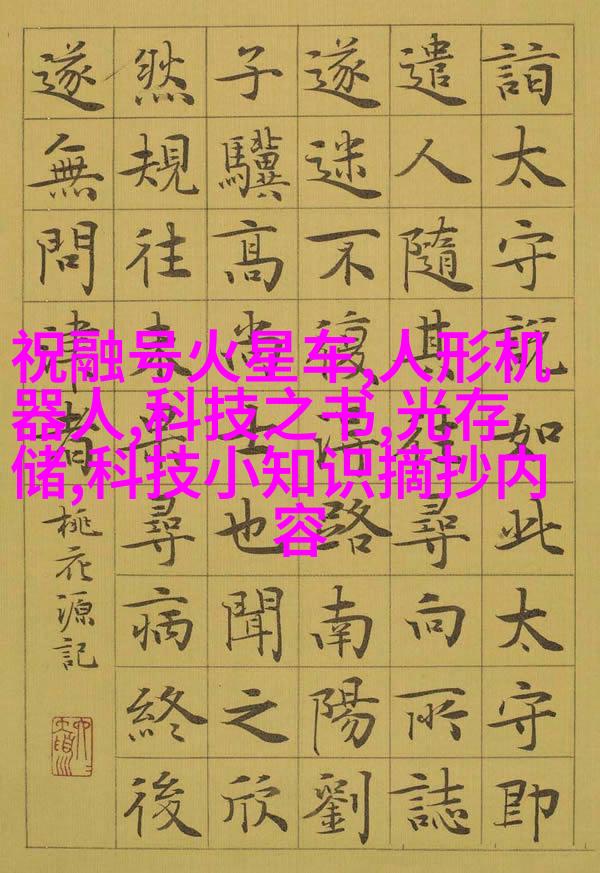 祝融号火星车,人形机
器人,科技之书,光存
储,科技小知识摘抄内
容
詣太守說如此太守即
遣人隨其往尋向所誌
遂迷不復得路南陽劉
子驥高尚士也聞之欣
然規往未果尋病終後
遂無問津者
桃花源記